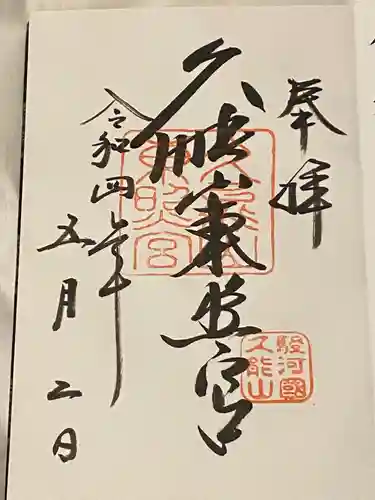 奉拝
久能山東照宮
令和四年
五月二日
久能山東照宮
駿河國
久能山